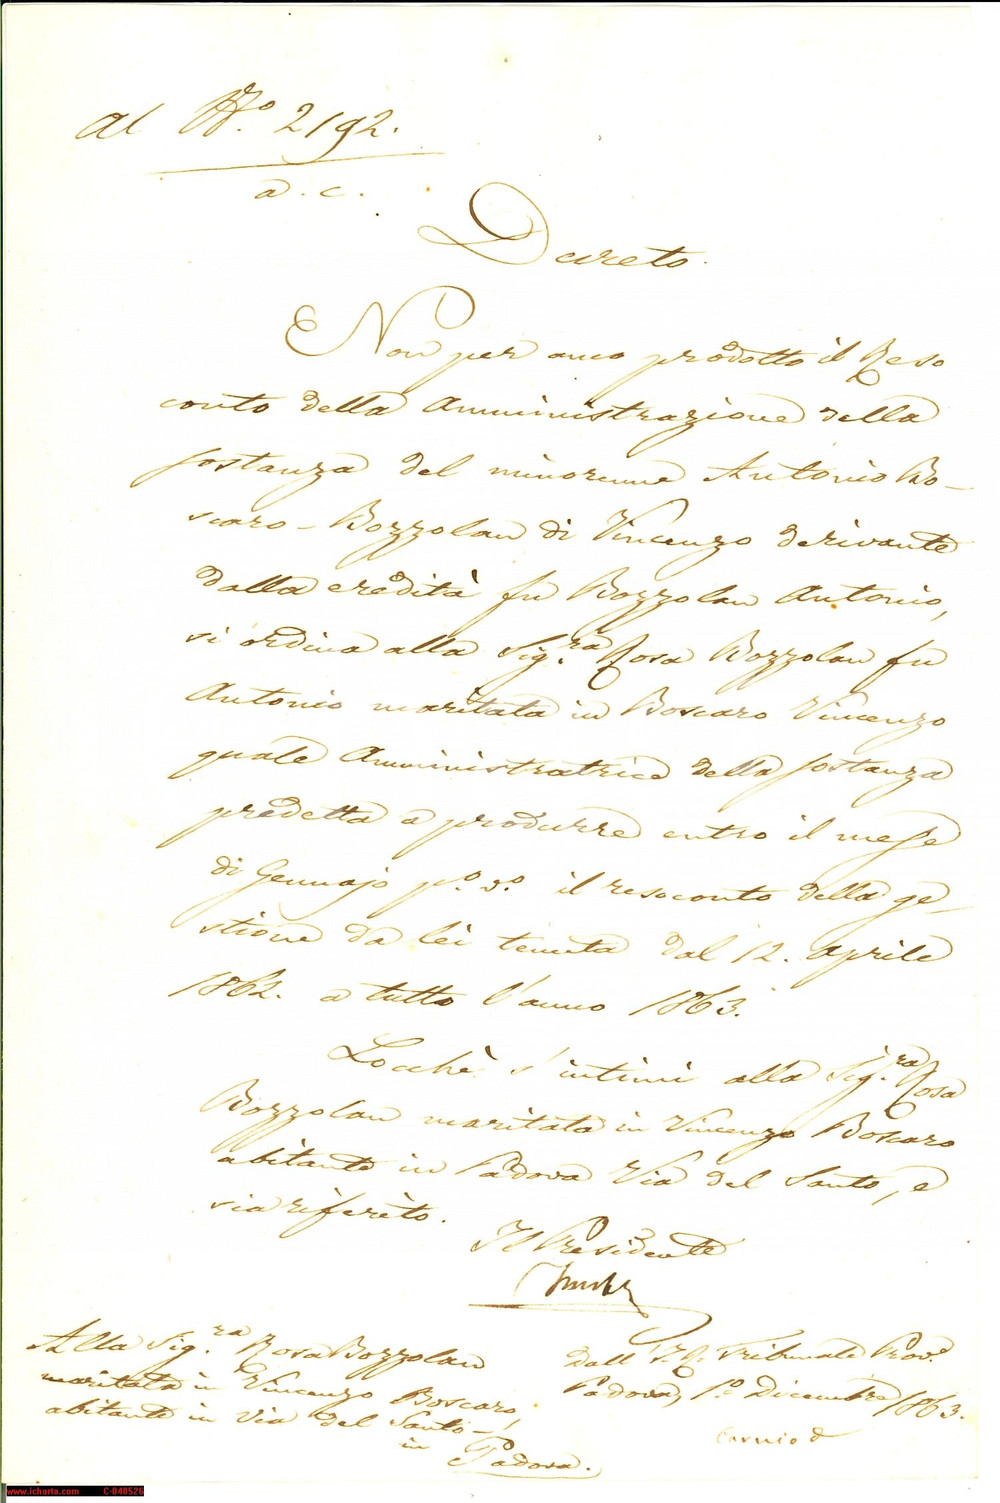 Al N.º 2192.
a. c.
Decreto.
Non per anco prodotto il Reso
conto della Amministrazione della
sostanza del minorenne Antonio Bo-
scaro-Bozzolan di Vincenzo derivante
dalla eredità fu Bozzolan Antonio,
si ordina alla Sig.ra Rosa Bozzolan fu
Antonio maritata in Boscaro Vincenzo
quale Amministratrice della sostanza
predetta a produrre entro il mese
di Gennajo p.º v.º il resoconto della ge-
stione da lei tenuta dal 12. Aprile
1862. a tutto l'anno 1863.
Locchè s'intimi alla Sig.ra Rosa
Bozzolan maritata in Vincenzo Boscaro
abitante in Padova Via del Santo, e
sia riferito.
Il Presidente
Dall' I. R. Tribunale Prov.e
Padova, 1.º Dicembre 1863.
Alla Sig.ra Rosa Bozzolan
maritata in Vincenzo Boscaro,
abitante in Via del Santo-
in
Padova.
www.icharta.com C-040526